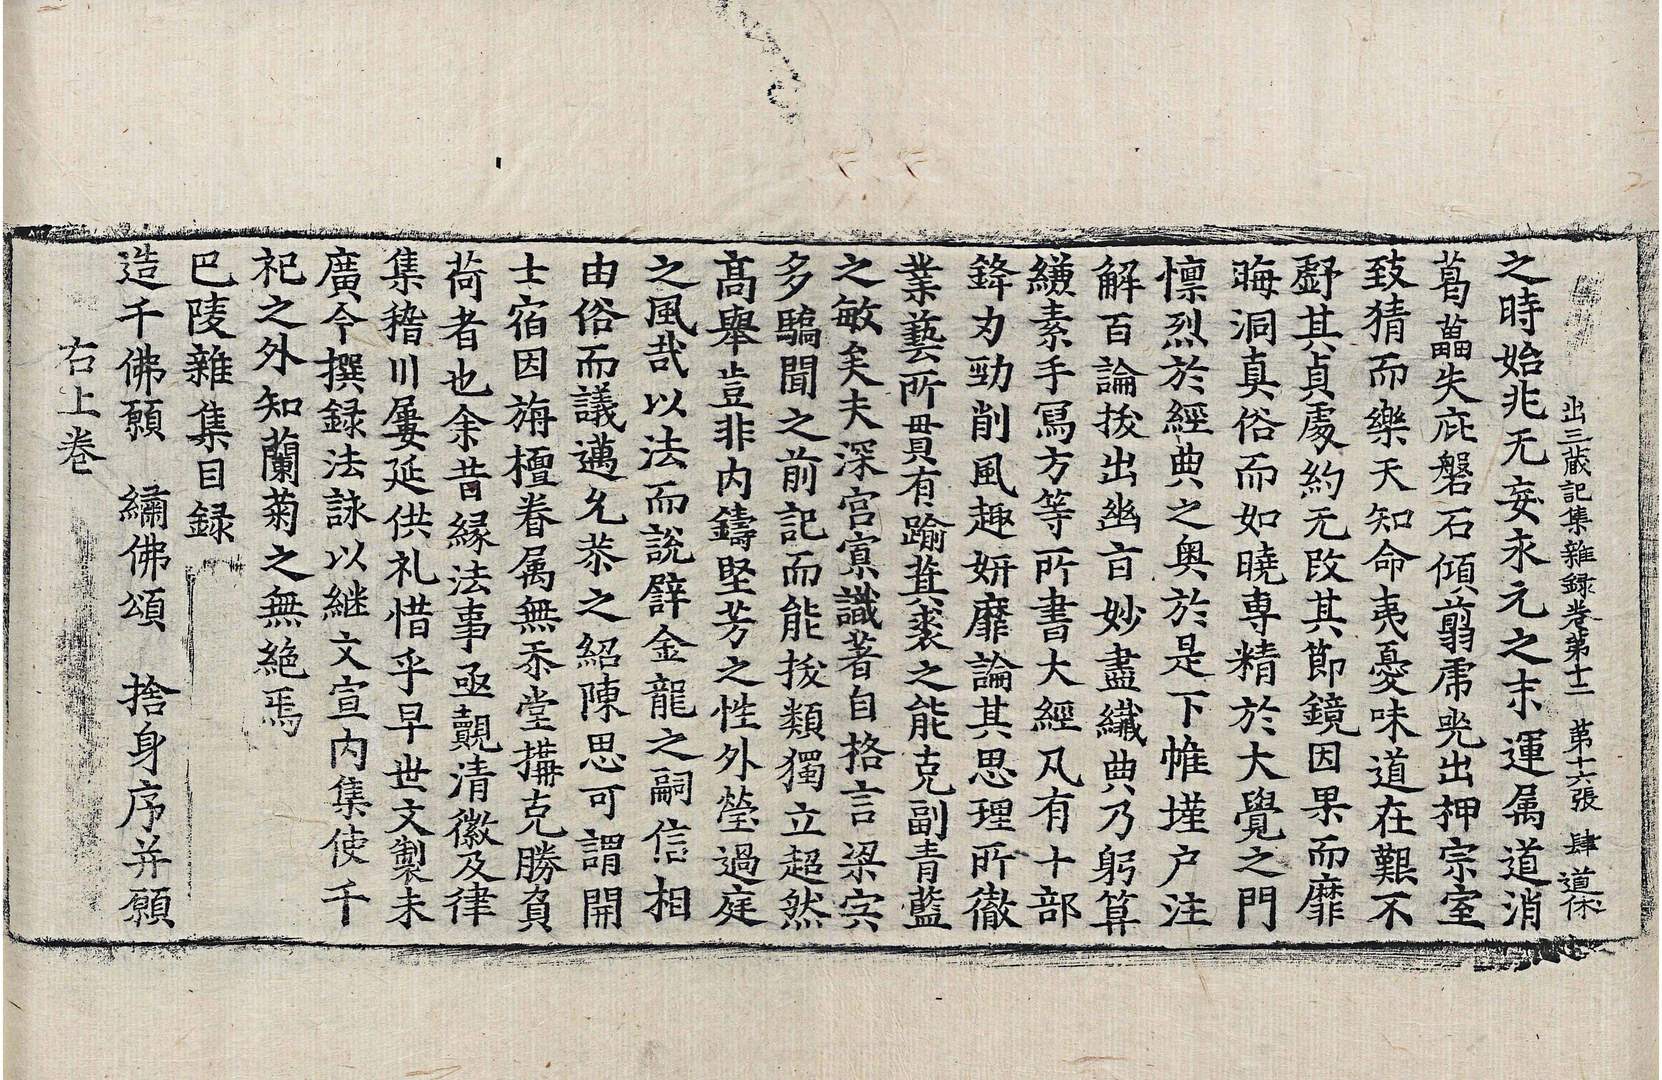 出三蔵記集雜録卷第十二 第十六張 肆 道休
之時始兆无妄永元之末運属道消
葛藟失庇磐石傾翦虎兕出押宗室
致猜而樂天知命夷憂味道在艱不
其貞處約无改其節鏡因果而靡
晦洞真俗而如曉專精於大覺之門
懍烈於經典之奧於是下帷墐户注
解百論拔出幽旨妙盡纎典乃躬算
縑素手寫方等所書大經凡有十部
鋒力勁削風趣妍靡論其思理所徹
業藝所貫有踰箕裘之能克副青藍
之敏矣夫深宮寡識著自格言梁宍
多驕聞之前記而能拔類獨立超然
髙舉豈非内鑄堅芳之性外瑩過庭
之風哉以法而說譬金龍之嗣信相
由俗而議邁允恭之紹陳思可謂開
士宿因旃檀眷属無忝堂構克勝負
荷者也余昔縁法事亟覿清徽及律
集稽川屢延供礼惜乎早世文製未
廣今撰録法詠以継文宣内集使千
祀之外知蘭菊之無絶焉
巴陵雜集目録
造千佛願 繡佛頌 捨身序并願
右上卷